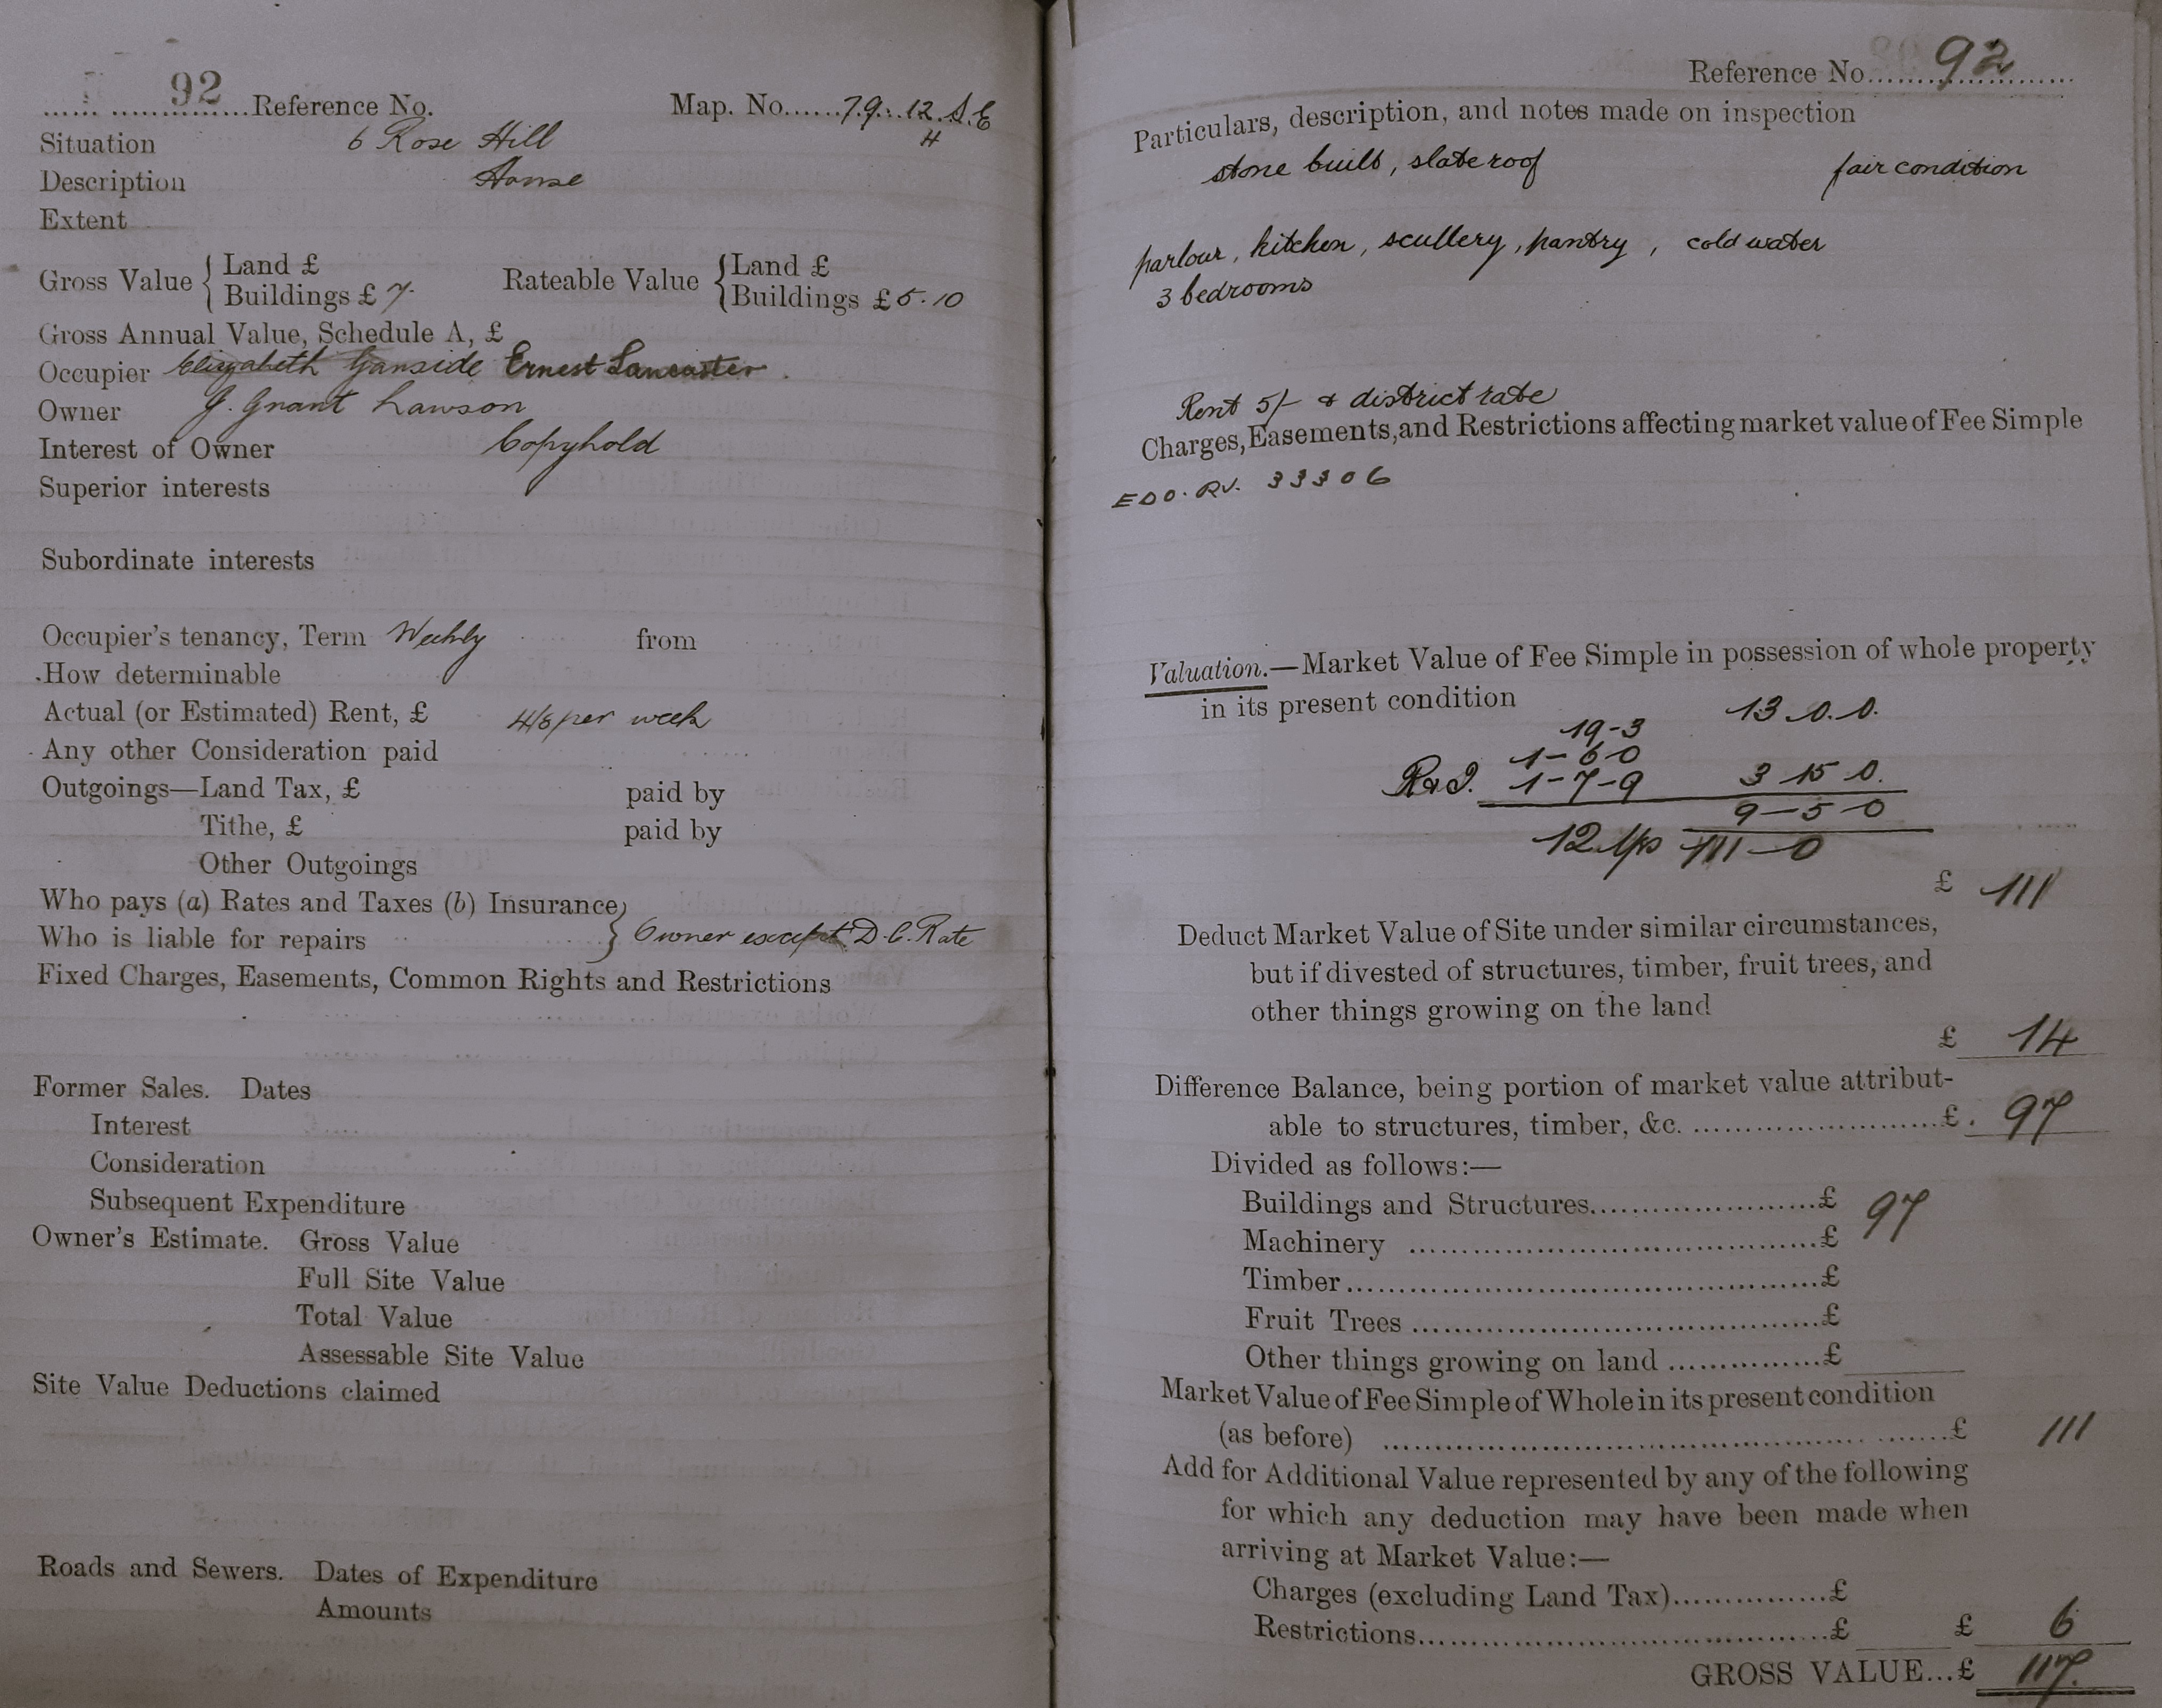 92 Reference No. Map. No. 79. 12. S.E
4
Situation 6 Rose Hill
Description House
Extent
Gross Value { Land £ Rateable Value { Land £
Buildings £ 7. Buildings £ 5.10
Gross Annual Value, Schedule A, £
Occupier Elizabeth Garside Ernest Lancaster.
Owner J. Grant Lawson
Interest of Owner Copyhold
Superior interests
Subordinate interests
Occupier's tenancy, Term Weekly from
How determinable
Actual (or Estimated) Rent, £ 4/8 per week
Any other Consideration paid
Outgoings—Land Tax, £ paid by
Tithe, £ paid by
Other Outgoings
Who pays (a) Rates and Taxes (b) Insurance }
Who is liable for repairs } Owner except D.C. Rate
Fixed Charges, Easements, Common Rights and Restrictions
Former Sales. Dates
Interest
Consideration
Subsequent Expenditure
Owner's Estimate. Gross Value
Full Site Value
Total Value
Assessable Site Value
Site Value Deductions claimed
Roads and Sewers. Dates of Expenditure
Amounts
Reference No. 92
Particulars, description, and notes made on inspection
stone built, slate roof fair condition
parlour, kitchen, scullery, pantry, cold water
3 bedrooms
Rent 5/- & district rate
Charges, Easements, and Restrictions affecting market value of Fee Simple
EDO. RV. 33306
Valuation.—Market Value of Fee Simple in possession of whole property
in its present condition 13.0.0.
19-3
1-6-0
R&I. 1-7-9 3 15 0.
9-5-0
12 yps 111-0
£ 111
Deduct Market Value of Site under similar circumstances,
but if divested of structures, timber, fruit trees, and
other things growing on the land
£ 14
Difference Balance, being portion of market value attribut-
able to structures, timber, &c. £ 97
Divided as follows:—
Buildings and Structures £ 97
Machinery £
Timber £
Fruit Trees £
Other things growing on land £
Market Value of Fee Simple of Whole in its present condition
(as before) £ 111
Add for Additional Value represented by any of the following
for which any deduction may have been made when
arriving at Market Value:—
Charges (excluding Land Tax) £
Restrictions £ £ 6
GROSS VALUE...£ 117.